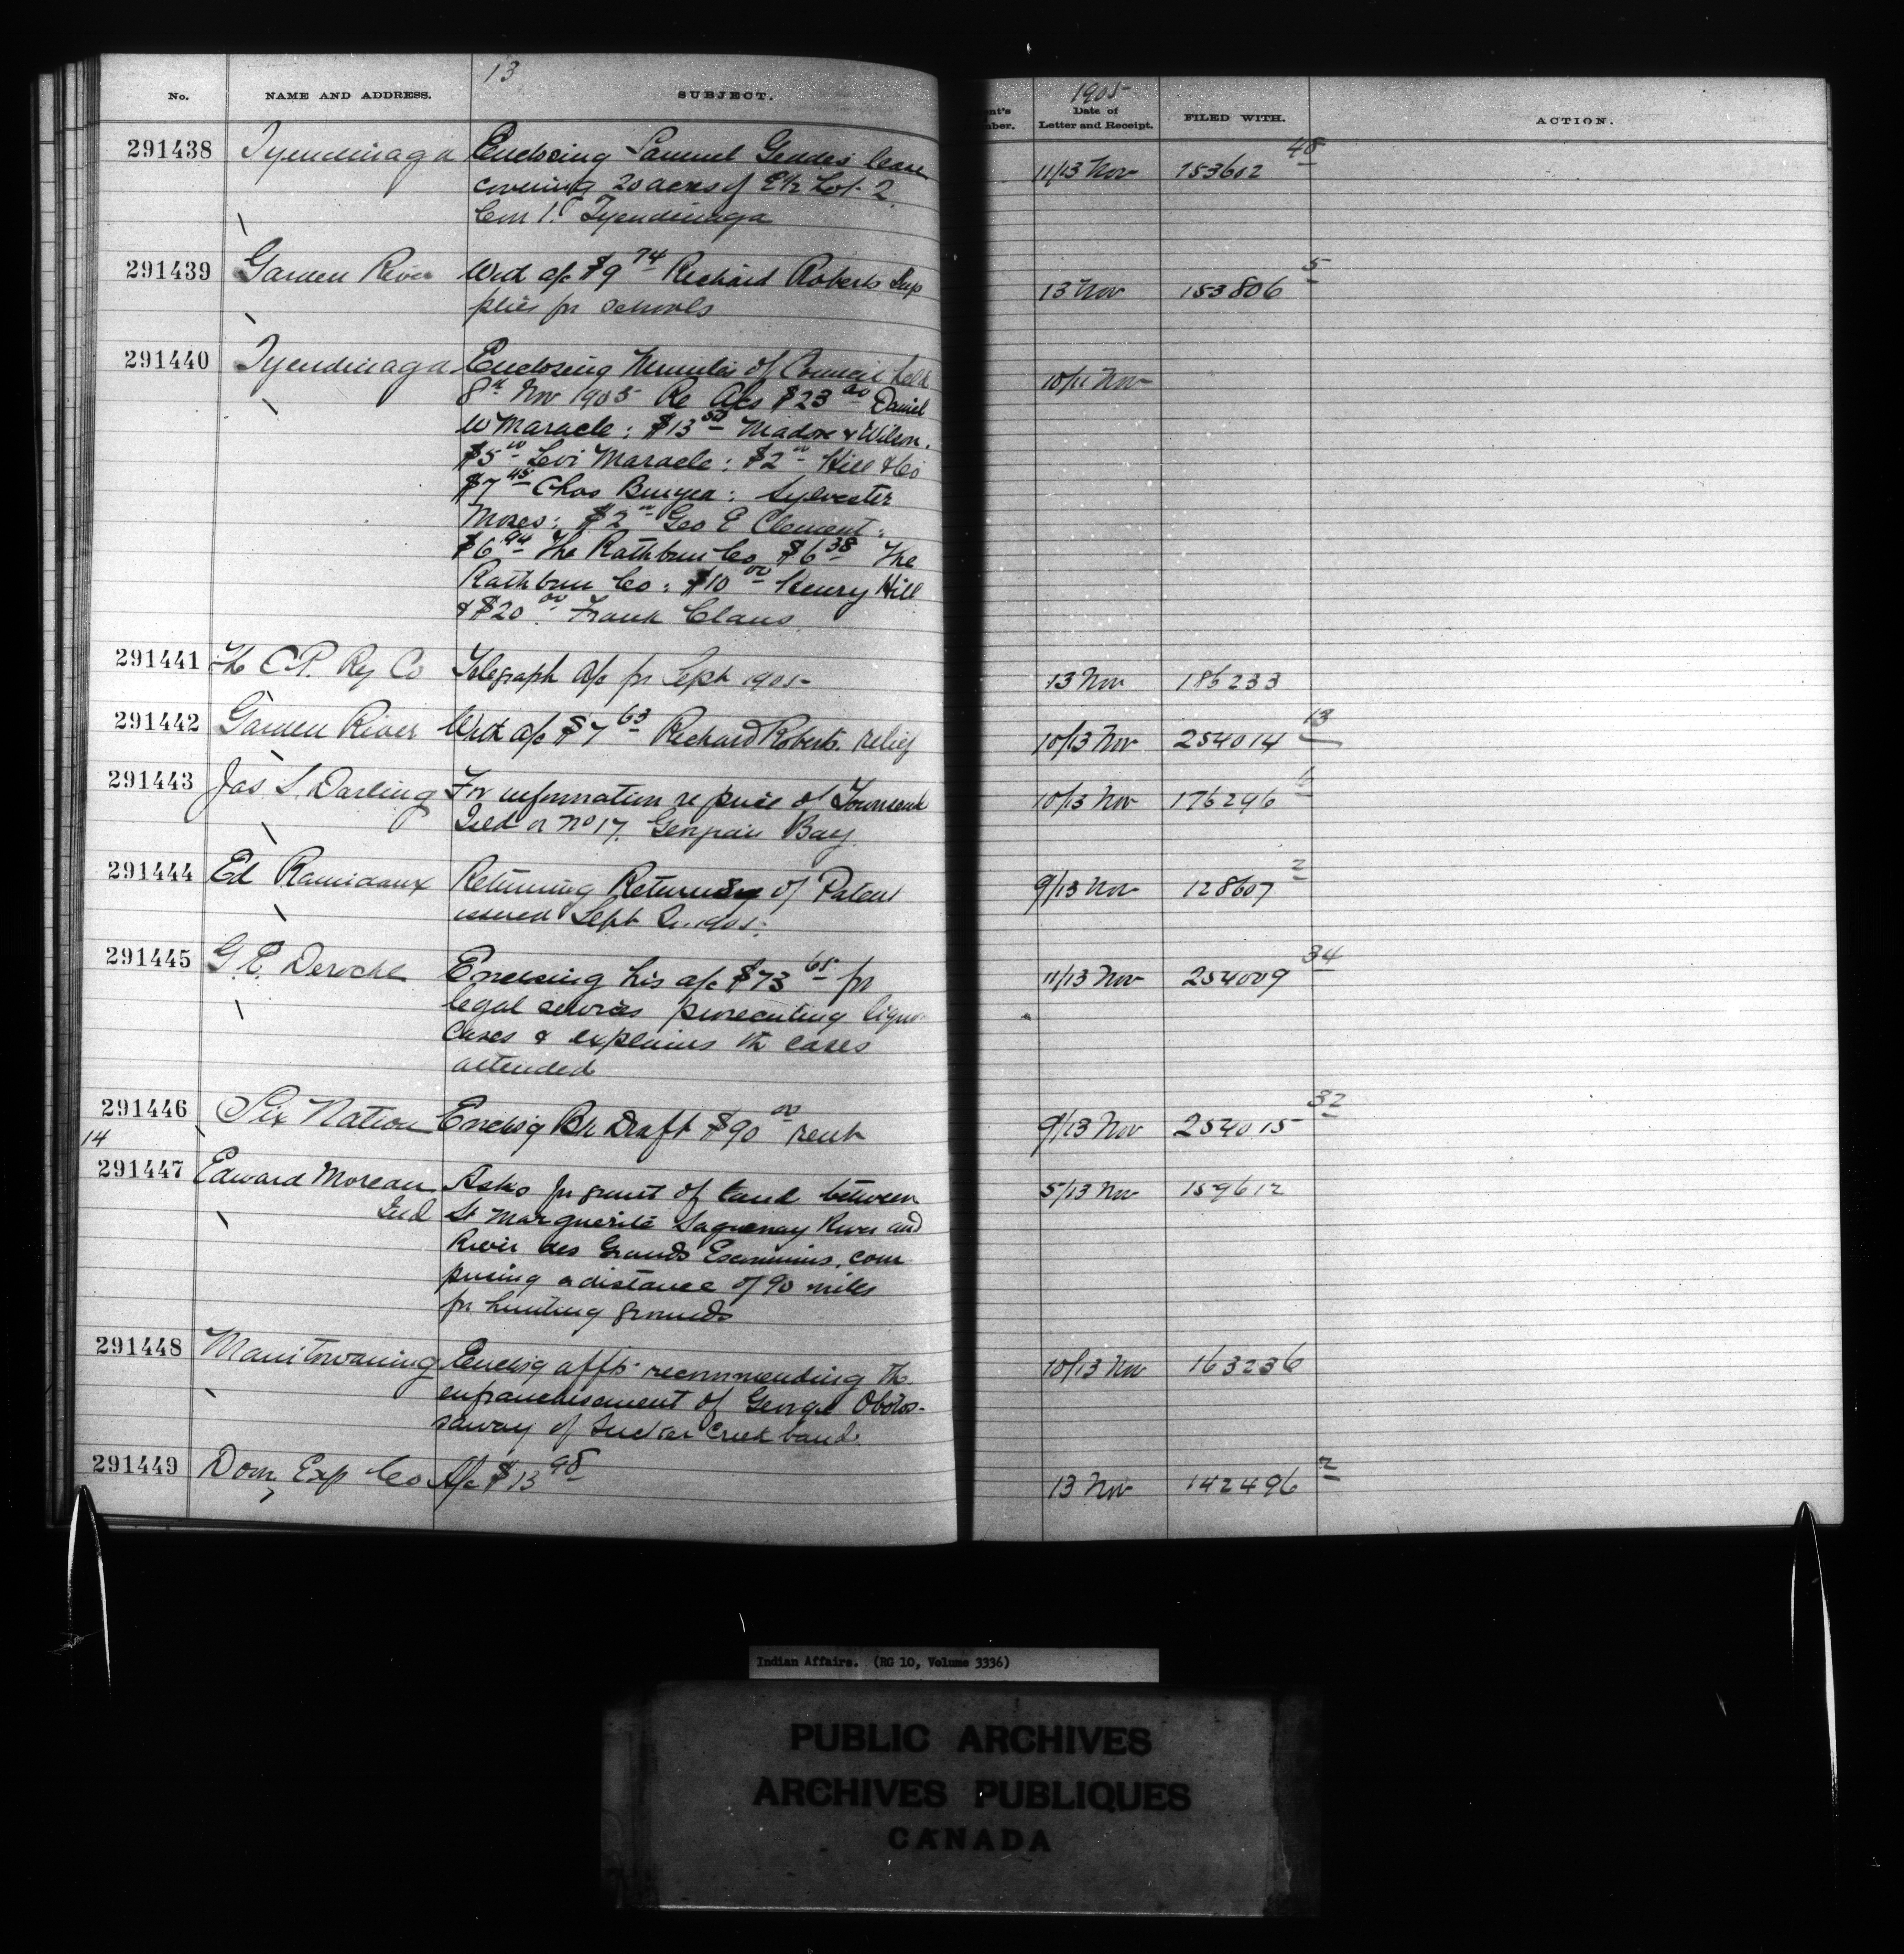 13
No. NAME AND ADDRESS. SUBJECT.
291438 Tyendinaga Enclosing Samuel Geddes lease
covering 20 acres of E½ Lot 2
Con 1. Tyendinaga
291439 Garden River Wrd a/c $9 74 Richard Roberts Sup
plies for schools
291440 Tyendinaga Enclosing Minutes of Council held
8th Nov 1905 Re A/cs $23 00 Daniel
W Maracle: $13 50 Madon & Wilson.
$5 00 Levi Maracle: $2 00 Hill & Co
$7 45 Chas Bunyea: Sylvester
Moses: $2 00 Geo E Clement:
$6 94 The Rathbun Co $6 38 The
Rathbun Co: $10 00 Henry Hill
& $20 00. Frank Claus
291441 The C.P. Ry Co Telegraph a/c for Sept 1905
291442 Garden River Wrd a/c $7 63 Richard Roberts. relief
291443 Jas S. Darling For information re price of Townsend
Isld or No 17. Georgian Bay
291444 Ed Returning of Patent
issued Sept 1905.
291445 G.E. Deroche Enclosing his a/c $73 65 for
legal services prosecuting liquor
cases & explains the cases
attended
291446 Six Nation Enclosg Bk Draft $90 00 rent
14
291447 Edward Moreau Asks for grant of land between
Ind St Marguerite Saguenay River and
River des Grands Escoumins, com
prising a distance of 90 miles
for hunting grounds
291448 Manitowaning Enclosg affts recommending the
enfranchisement of George Obotos-
saway of Sucker Creek band.
291449 Dom Exp Co A/c $13 98
1905
ent's
mber.
Date of
Letter and Receipt.
FILED WITH. ACTION.
11/13 Nov 153602 48
13 Nov 153806 5
10/11 Nov
13 Nov 186233
10/13 Nov 254014 13
10/13 Nov 176296
9/13 Nov 128607 2
11/13 Nov 254009 34
9/13 Nov 254015 32
5/13 Nov 159612
10/13 Nov 163236
13 Nov 142496 2
Indian Affairs. (RG 10, Volume 3336)
PUBLIC ARCHIVES
ARCHIVES PUBLIQUES
CANADA